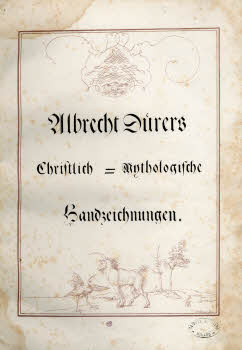 Albrecht Dürers
Chriſtlich = Mythologiſche
Handzeichnungen.